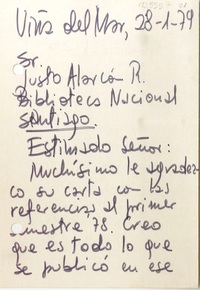 Viña del Mar, 28-1-79
Sr.
Justo Alarcón R.
Biblioteca Nacional
Santiago.
Estimado señor:
Muchísimo le agradez
co su carta con las
referencias al primer
semestre 78. Creo
que es todo lo que
se publicó en ese